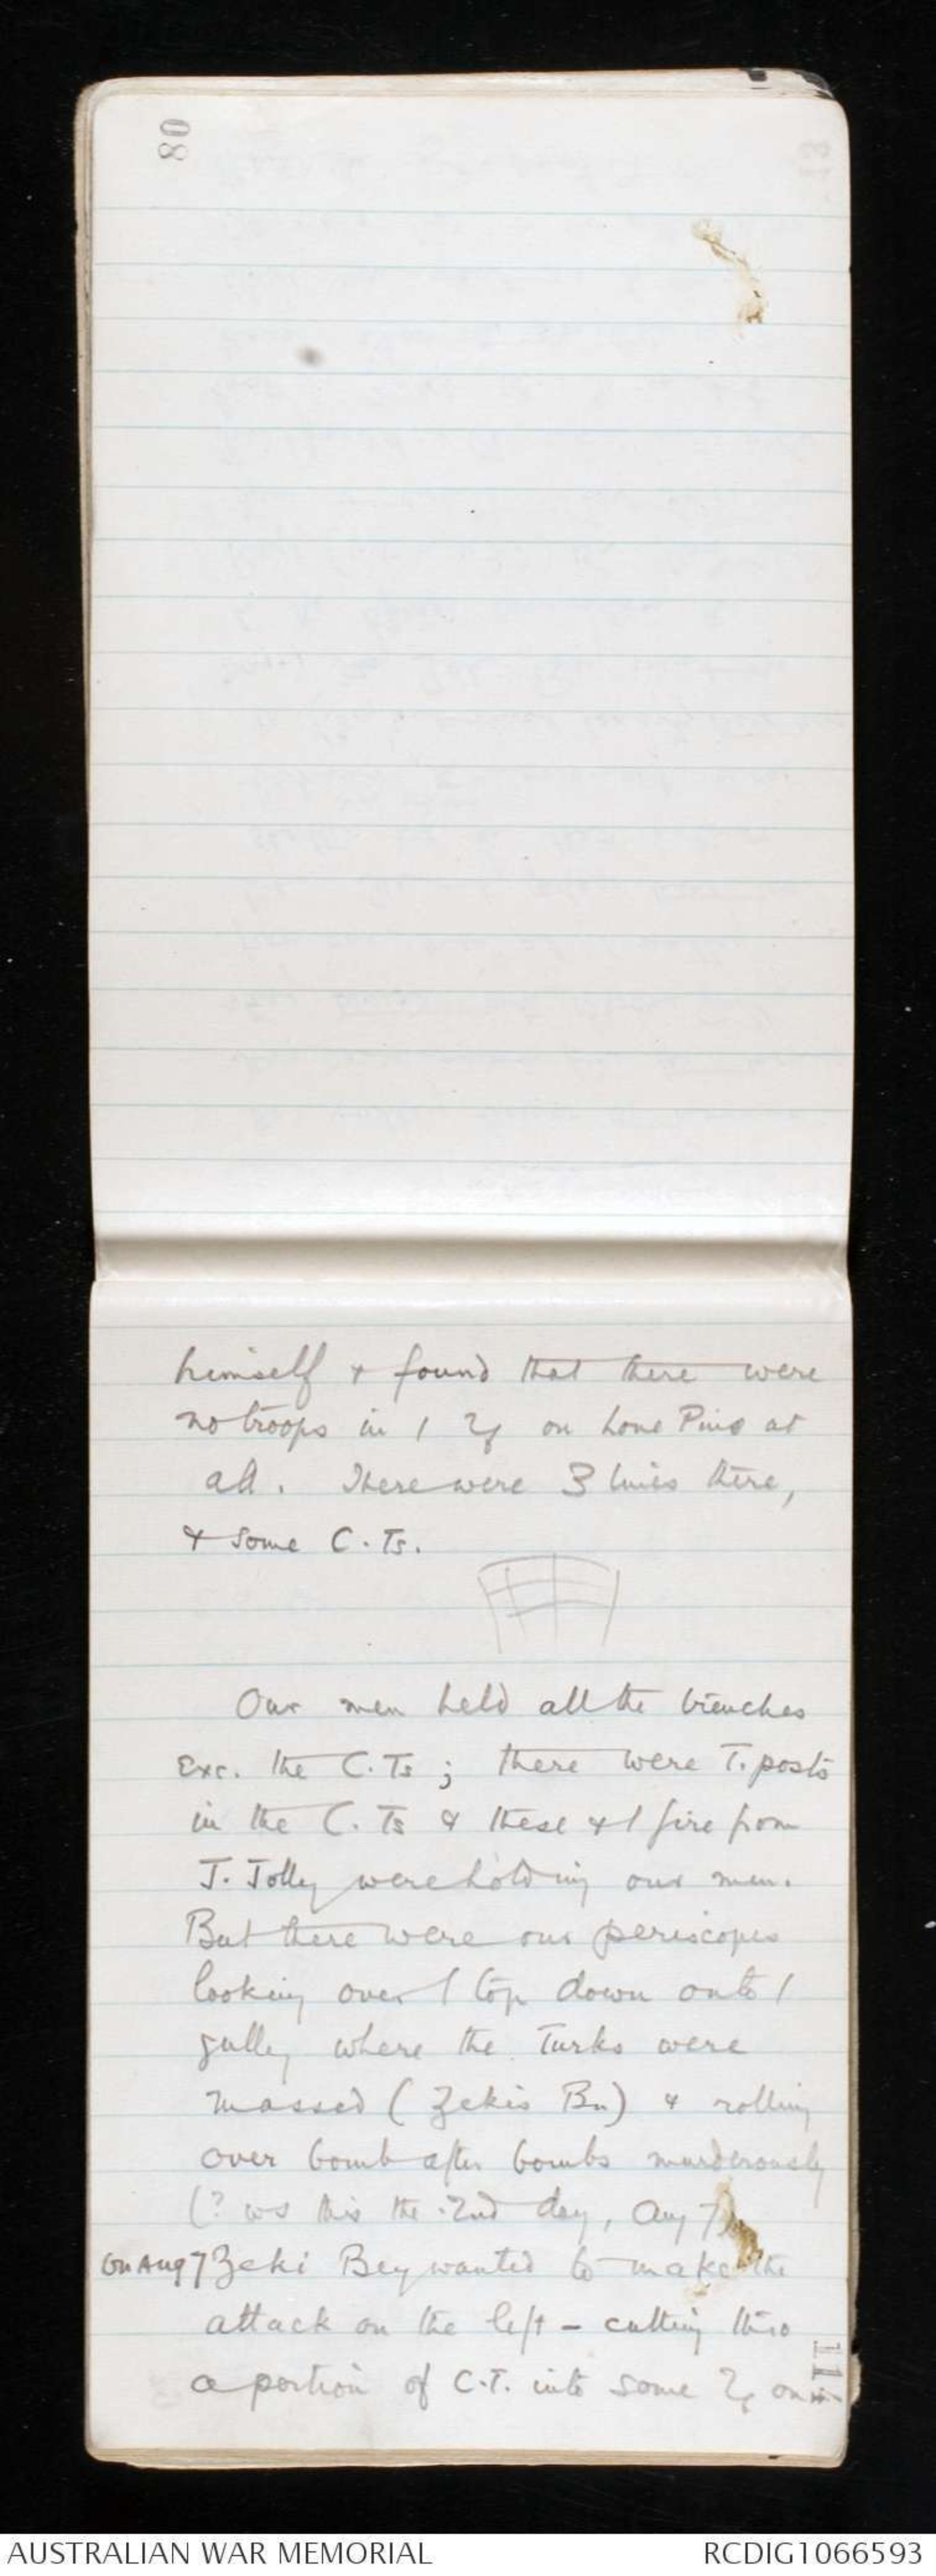 80
himself & found that there were
no troops in / on Lone Pine at
all. There were 3 lines there,
& some C.Ts.
Our men held all the trenches
exc. the C.Ts ; there were T. posts
in the C.Ts & these & / fire from
J. Jolly were holding our men.
But there were our periscopes
looking over / top down onto /
gully where the Turks were
massed (Zekis Bn) & rolling
over bomb after bombs murderously
(? ws this the 2nd day, Aug 7)
On Aug 7 Zeki Bey wanted to make the
attack on the left - cutting thro
a portion of C.T. into some on
11
AUSTRALIAN WAR MEMORIAL
RCDIG1066593